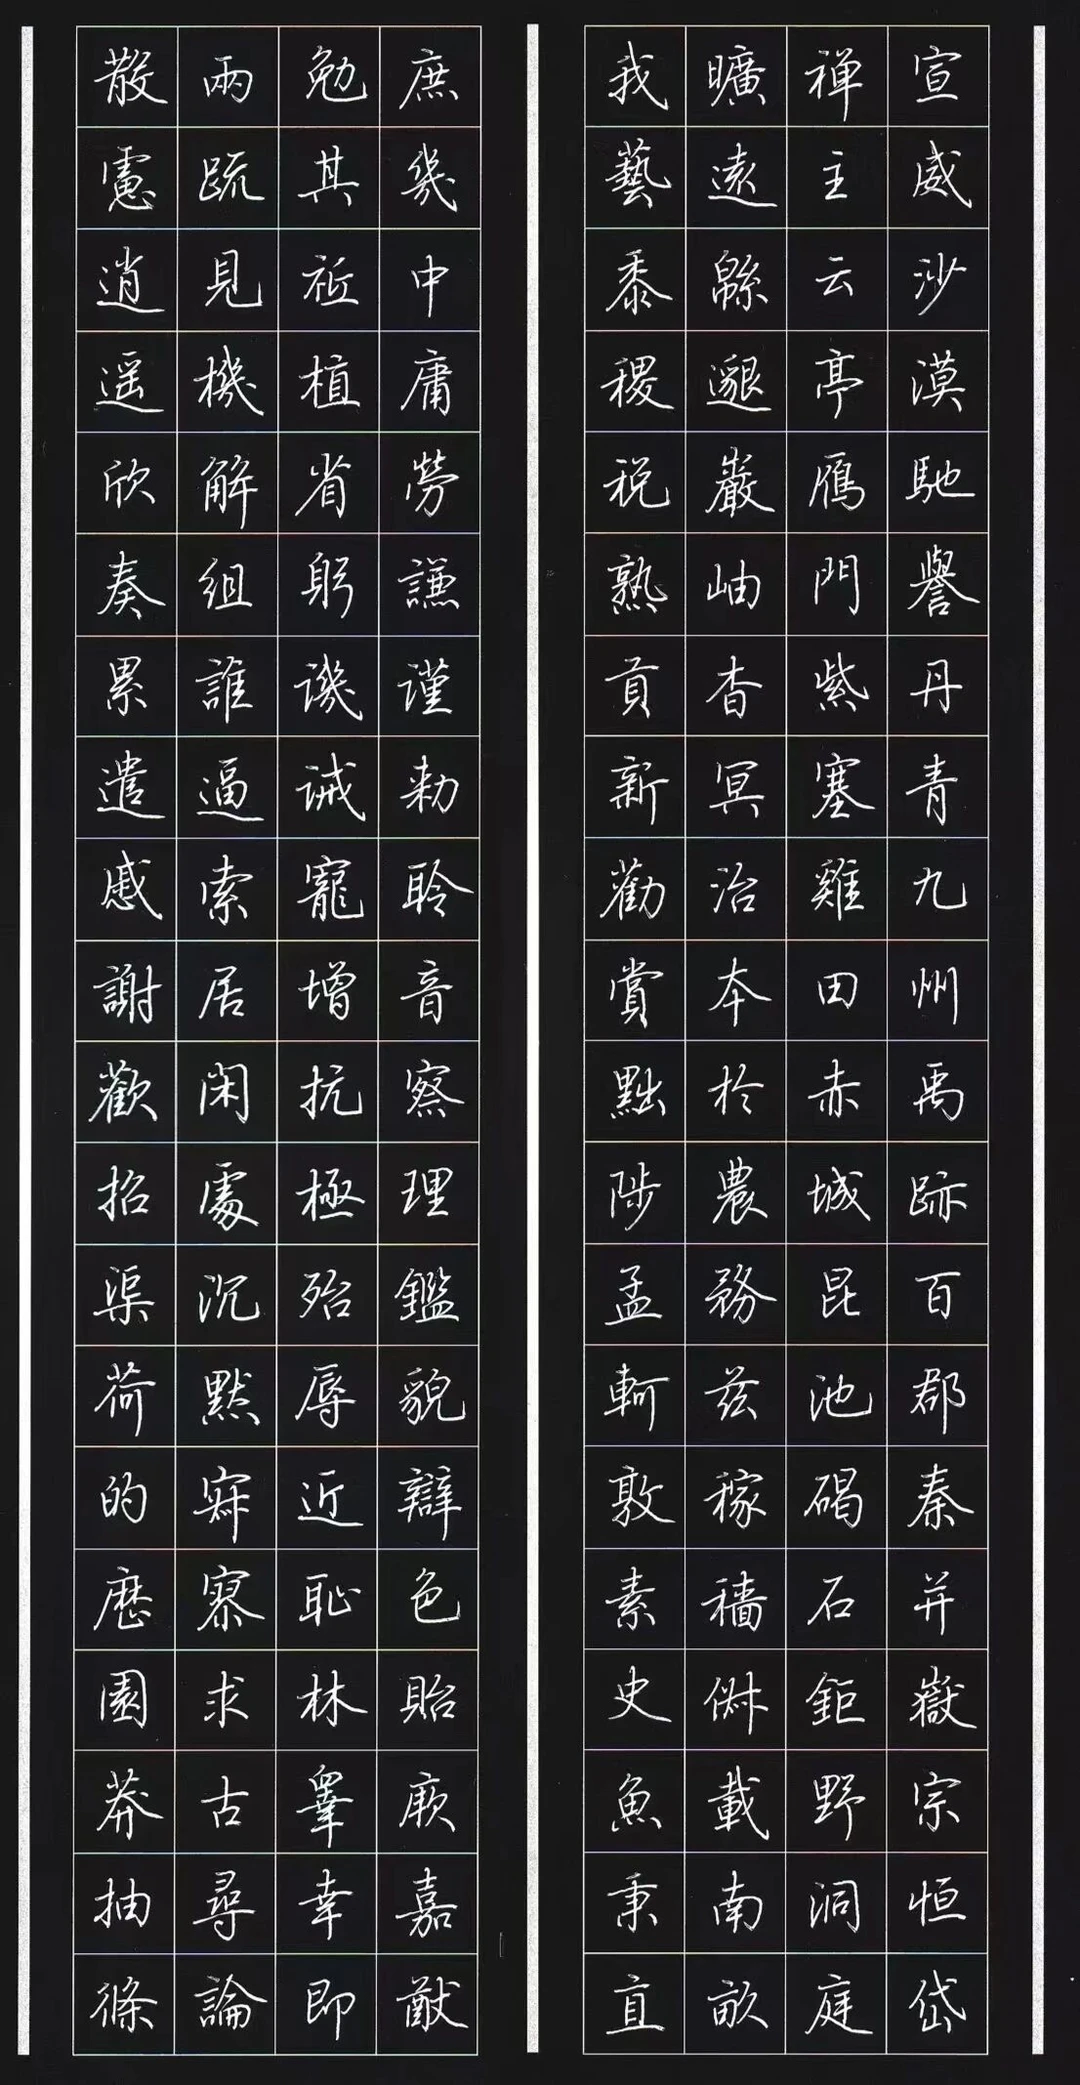 宣威沙漠馳譽丹青九州禹跡百郡秦并嶽宗恒岱
禪主云亭鴈門紫塞雞田赤城昆池碣石鉅野洞庭
曠遠緜邈巖岫杳冥治本於農務兹稼穡俶載南畝
我藝黍稷税熟貢新勸賞黜陟孟軻敦素史魚秉直
庶幾中庸勞謙謹勑聆音察理鑑貌辯色貽厥嘉猷
勉其祗植省躬譏誡寵增抗極殆辱近恥林睾幸即
兩疏見機解組誰逼索居閑處沉默寂寥求古尋論
散慮逍遥欣奏累遣慼謝歡招渠荷的歷園莽抽條